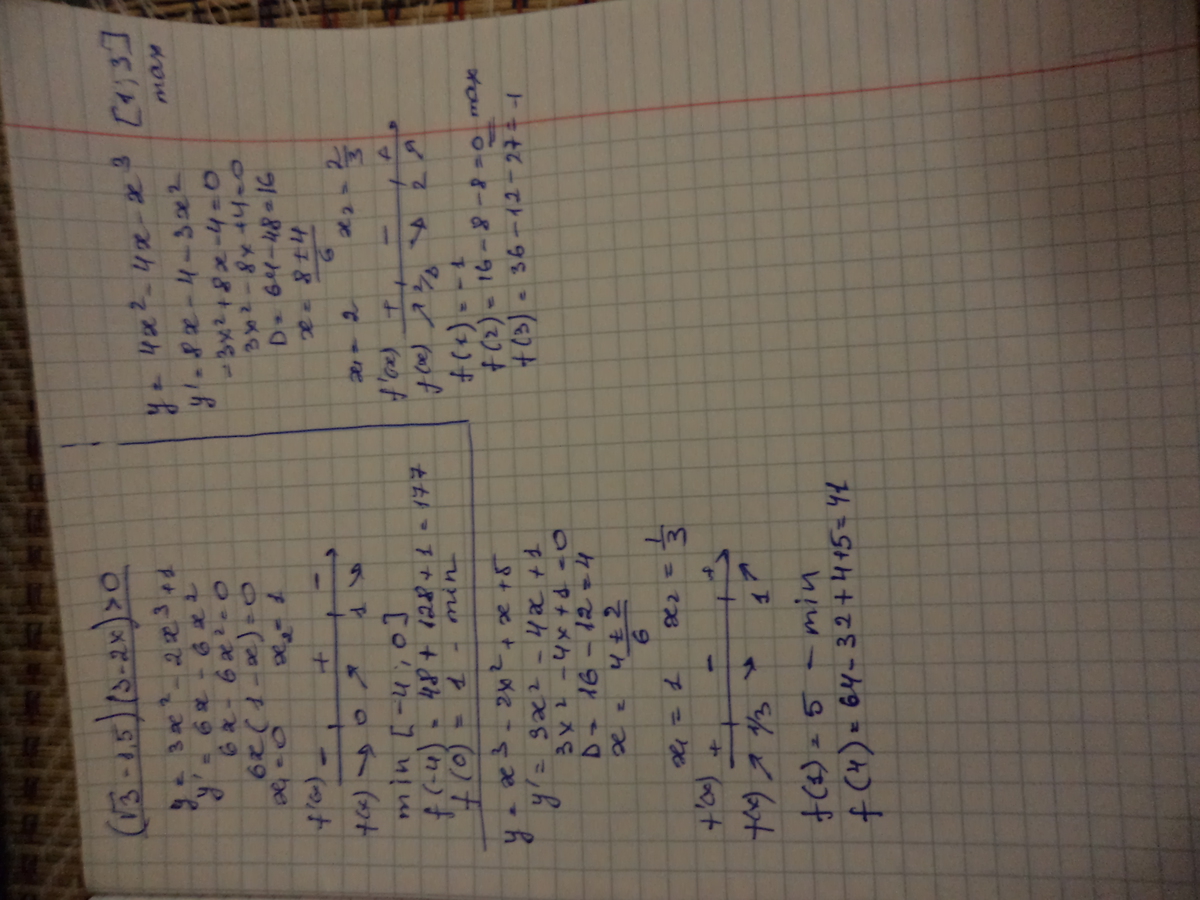 (√3 - 1,5)(3-2x)>0
y = 3x² - 2x³ + 1
y' = 6x - 6x²
6x - 6x² = 0
6x(1 - x) = 0
x₁ = 0 x₂ = 1
f'(x) - + -
f(x) → 0 ↗ 1 ↘
min [-4; 0]
f(-4) = 48 + 128 + 1 = 177
f(0) = 1 - min
y = x³ - 2x² + x + 5
y' = 3x² - 4x + 1
3x² - 4x + 1 = 0
D = 16 - 12 = 4
x = (4 ± 2)/6
x₁ = 1 x₂ = 1/3
f'(x) + - +
f(x) ↗ 1/3 ↘ 1 ↗
f(1) = 5 - min
f(4) = 64 - 32 + 4 + 5 = 41
y = 4x² - 4x - x³ [1; 3]
max
y' = 8x - 4 - 3x²
-3x² + 8x - 4 = 0
3x² - 8x + 4 = 0
D = 64 - 48 = 16
x = (8 ± 4)/6
x₁ = 2 x₂ = 2/3
f'(x) + - +
f(x) ↗ 2/3 ↘ 2 ↗
f(1) = -1
f(2) = 16 - 8 - 8 = 0 max
f(3) = 36 - 12 - 27 = -1